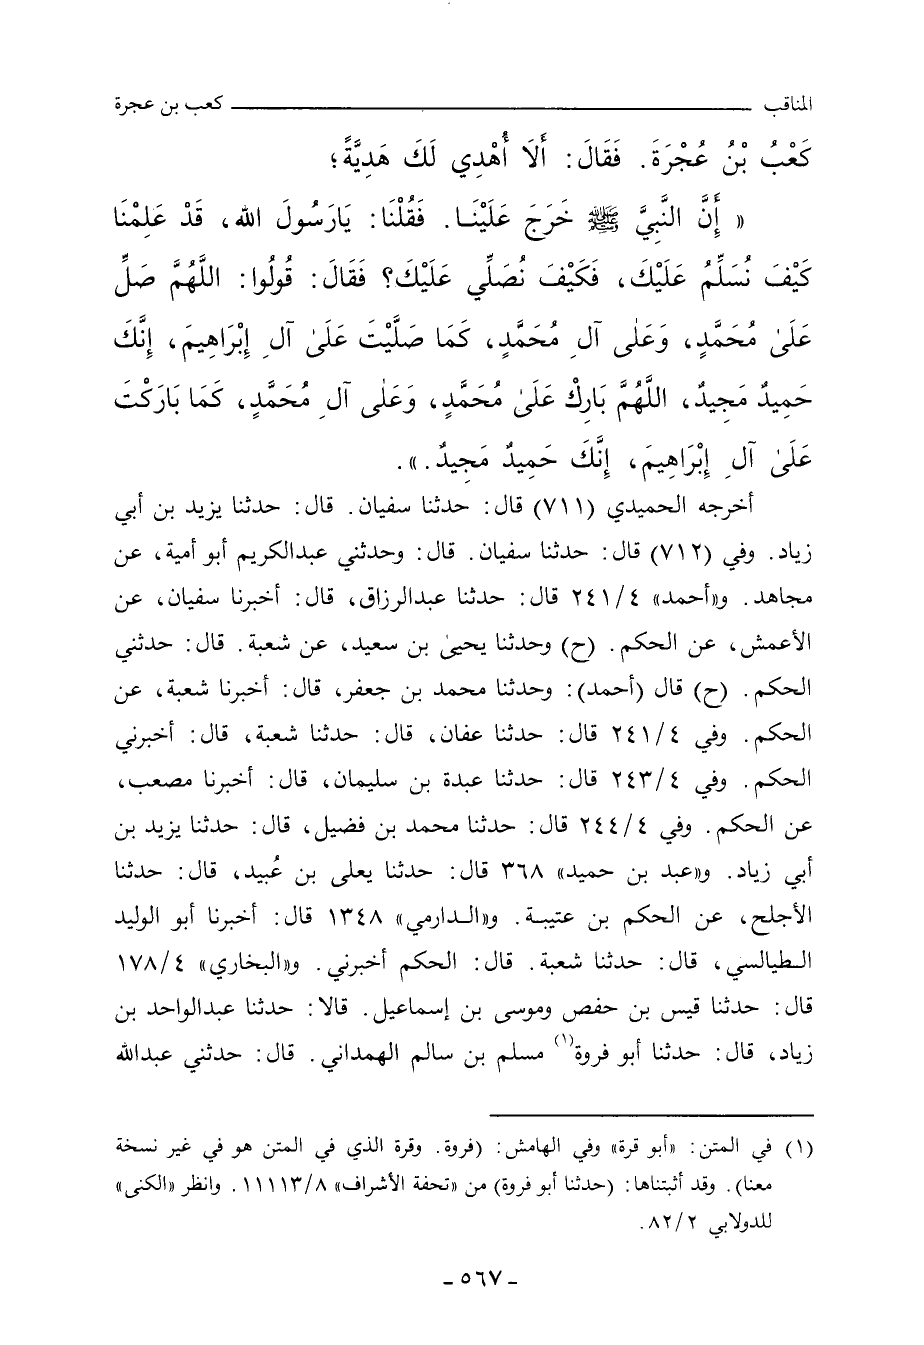 المناقب ـــــــــــــــــ كعب بن عجرة
كَعْبُ بْنُ عُجْرَةَ. فَقَالَ: أَلَا أُهْدِي لَكَ هَدِيَّةً؛
« إَنَّ النَّبِيَّ ﷺ خَرَجَ عَلَيْنَـا. فَقُلْنَا: يَارَسُولَ الله، قَدْ عَلِمْنَا
كَيْفَ نُسَلِّمُ عَلَيْكَ، فَكَيْفَ نُصَلِّي عَلَيْكَ؟ فَقَالَ: قُولُوا: اللَّهُمَّ صَلِّ
عَلَىٰ مُحَمَّدٍ، وَعَلٰى آلِ مُحَمَّدٍ، كَمَا صَلَّيْتَ عَلَىٰ آلِ إِبْرَاهِيمَ، إِنَّكَ
حَمِيدٌ مَجِيدٌ، اللَّهُمَّ بَارِكْ عَلَىٰ مُحَمَّدٍ، وَعَلٰى آلِ مُحَمَّدٍ، كَمَا بَارَكْتَ
عَلَىٰ آلِ إِبْرَاهِيمَ، إِنَّكَ حَمِيدٌ مَجِيدٌ.».
أخرجه الحميدي (٧١١) قال: حدثنا سفيان. قال: حدثنا يزيد بن أبي
زياد. وفي (٧١٢) قال: حدثنا سفيان. قال: وحدثني عبدالكريم أبو أمية، عن
مجاهد. و«أحمد» ٢٤١/٤ قال: حدثنا عبدالرزاق، قال: أخبرنا سفيان، عن
الأعمش، عن الحكم. (ح) وحدثنا يحيىٰ بن سعيد، عن شعبة. قال: حدثني
الحكم. (ح) قال (أحمد): وحدثنا محمد بن جعفر، قال: أخبرنا شعبة، عن
الحكم. وفي ٢٤١/٤ قال: حدثنا عفان، قال: حدثنا شعبة، قال: أخبرني
الحكم. وفي ٢٤٣/٤ قال: حدثنا عبدة بن سليمان، قال: أخبرنا مصعب،
عن الحكم. وفي ٢٤٤/٤ قال: حدثنا محمد بن فضيل، قال: حدثنا يزيد بن
أبي زياد. و«عبد بن حميد» ٣٦٨ قال: حدثنا يعلى بن عُبيد، قال: حدثنا
الأجلح، عن الحكم بن عتيبـة. و«الـدارمي» ١٣٤٨ قال: أخبرنا أبو الوليد
الـطيالسي، قال: حدثنا شعبة. قال: الحكم أخبرني. و«البخاري» ١٧٨/٤
قال: حدثنا قيس بن حفص وموسى بن إسماعيل. قالا: حدثنا عبدالواحد بن
زياد، قال: حدثنا أبو فروة(١) مسلم بن سالم الهمداني. قال: حدثني عبدالله
(١) في المتن: «أبو قرة» وفي الهامش: (فروة. وقرة الذي في المتن هو في غير نسخة
معنا). وقد أثبتناها: (حدثنا أبو فروة) من «تحفة الأشراف» ١١١١٣/٨. وانظر «الكنى»
للدولابي ٨٢/٢.
ـ ٥٦٧ ـ